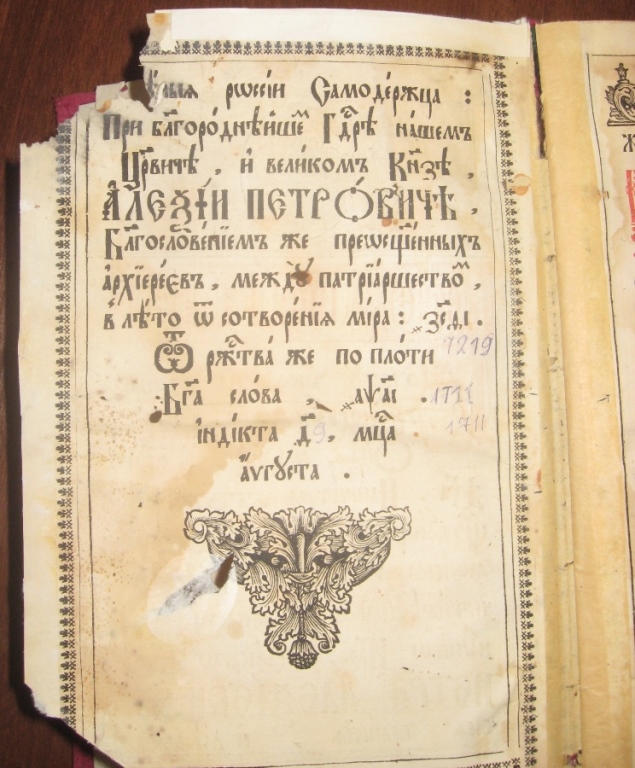 ѿлыѧ рѡссіи Самодержца :
При бл҃городнѣйшемъ Гд҃рѣ нашемъ
Цр҃вичѣ , и великомъ Кн҃зѣ ,
АЛЕѮІИ ПЕТРѠВИЧѢ ,
Бл҃гословеніемъ же преѡсщ҃енныхъ
архіереєвъ , междꙋ патріаршествомъ ,
в лѣто ѿ сотворенія міра : ҂зсѳ҃і . 7219
Ѿ рж҃тва же по плоти
Бг҃а слова , ҂аѱаі . 1711
індікта д҃ , мц҃а 1711
аѵгꙋста .